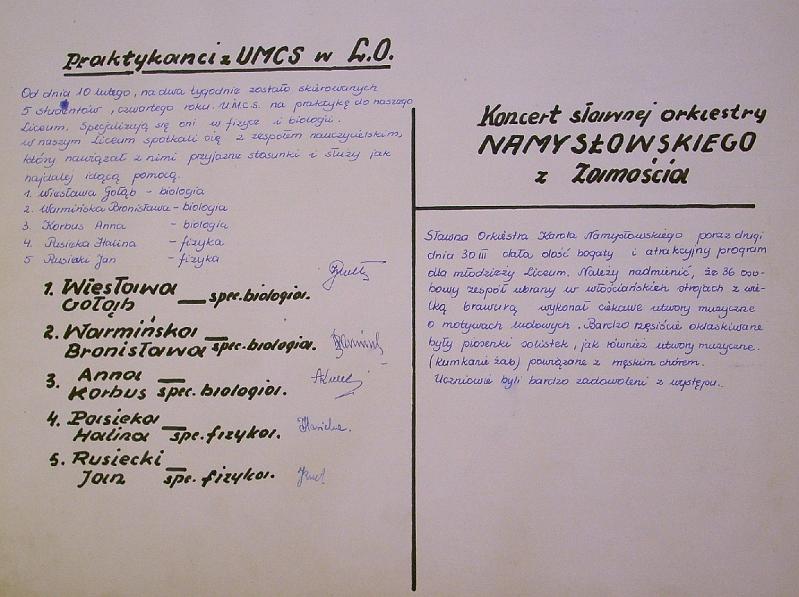 Praktykanci z UMCS w L.O.
Od dnia 10 lutego, na dwa tygodnie zostało skierowanych
5 studentów, czwartego roku U.M.C.S. na praktykę do naszego
Liceum. Specjalizują się oni w fizyce i biologii.
w naszym Liceum spotkali się z zespołem nauczycielskim,
który nawiązał z nimi przyjazne stosunki i służy jak
najdalej idącą pomocą.
1. Wiesława Gołąb - biologia
2. Warmińska Bronisława - biologia
3 Korbus Anna - biologia
4. Pasieka Halina - fizyka
5 Rusiecki Jan - fizyka
1. Wiesława
Gołąb — spec. biologia.
2. Warmińska
Bronisława — spec. biologia.
3. Anna
Korbus — spec. biologia.
4. Pasieka
Halina — spe. fizyka.
5. Rusiecki
Jan — spe. fizyka.
Koncert sławnej orkiestry
NAMYSŁOWSKIEGO
z Zamościa
Sławna Orkiestra Karola Namysłowskiego poraz drugi
dnia 30 III dała dość bogaty i atrakcyjny program
dla młodzieży Liceum. Należy nadmienić, że 36 oso-
bowy zespół ubrany w włościańskich strojach z wiel-
ką brawurą wykonał ciekawe utwory muzyczne
o motywach ludowych. Bardzo rzęsiście oklaskiwane
były piosenki solistek, jak również utwory muzyczne.
(kumkanie żab) powiązane z męskim chórem.
Uczniowie byli bardzo zadowoleni z występu.